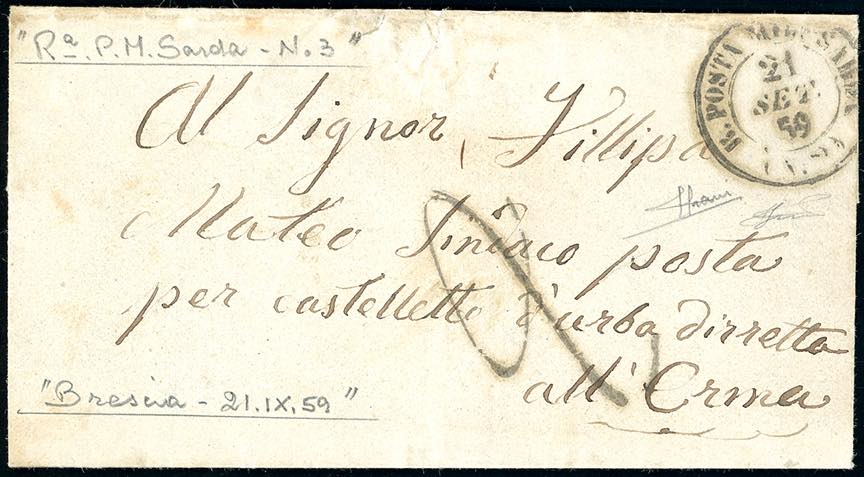 "Rª. P. M. Sarda - N. 3"
R. POSTA MILE SARDA
21
SET.
59
(N. 3)
Al Signor, Fillipa
Mateo Sindaco posta
per castelletto d'urba dirretta
all' Erma
"Brescia - 21. IX. 59"